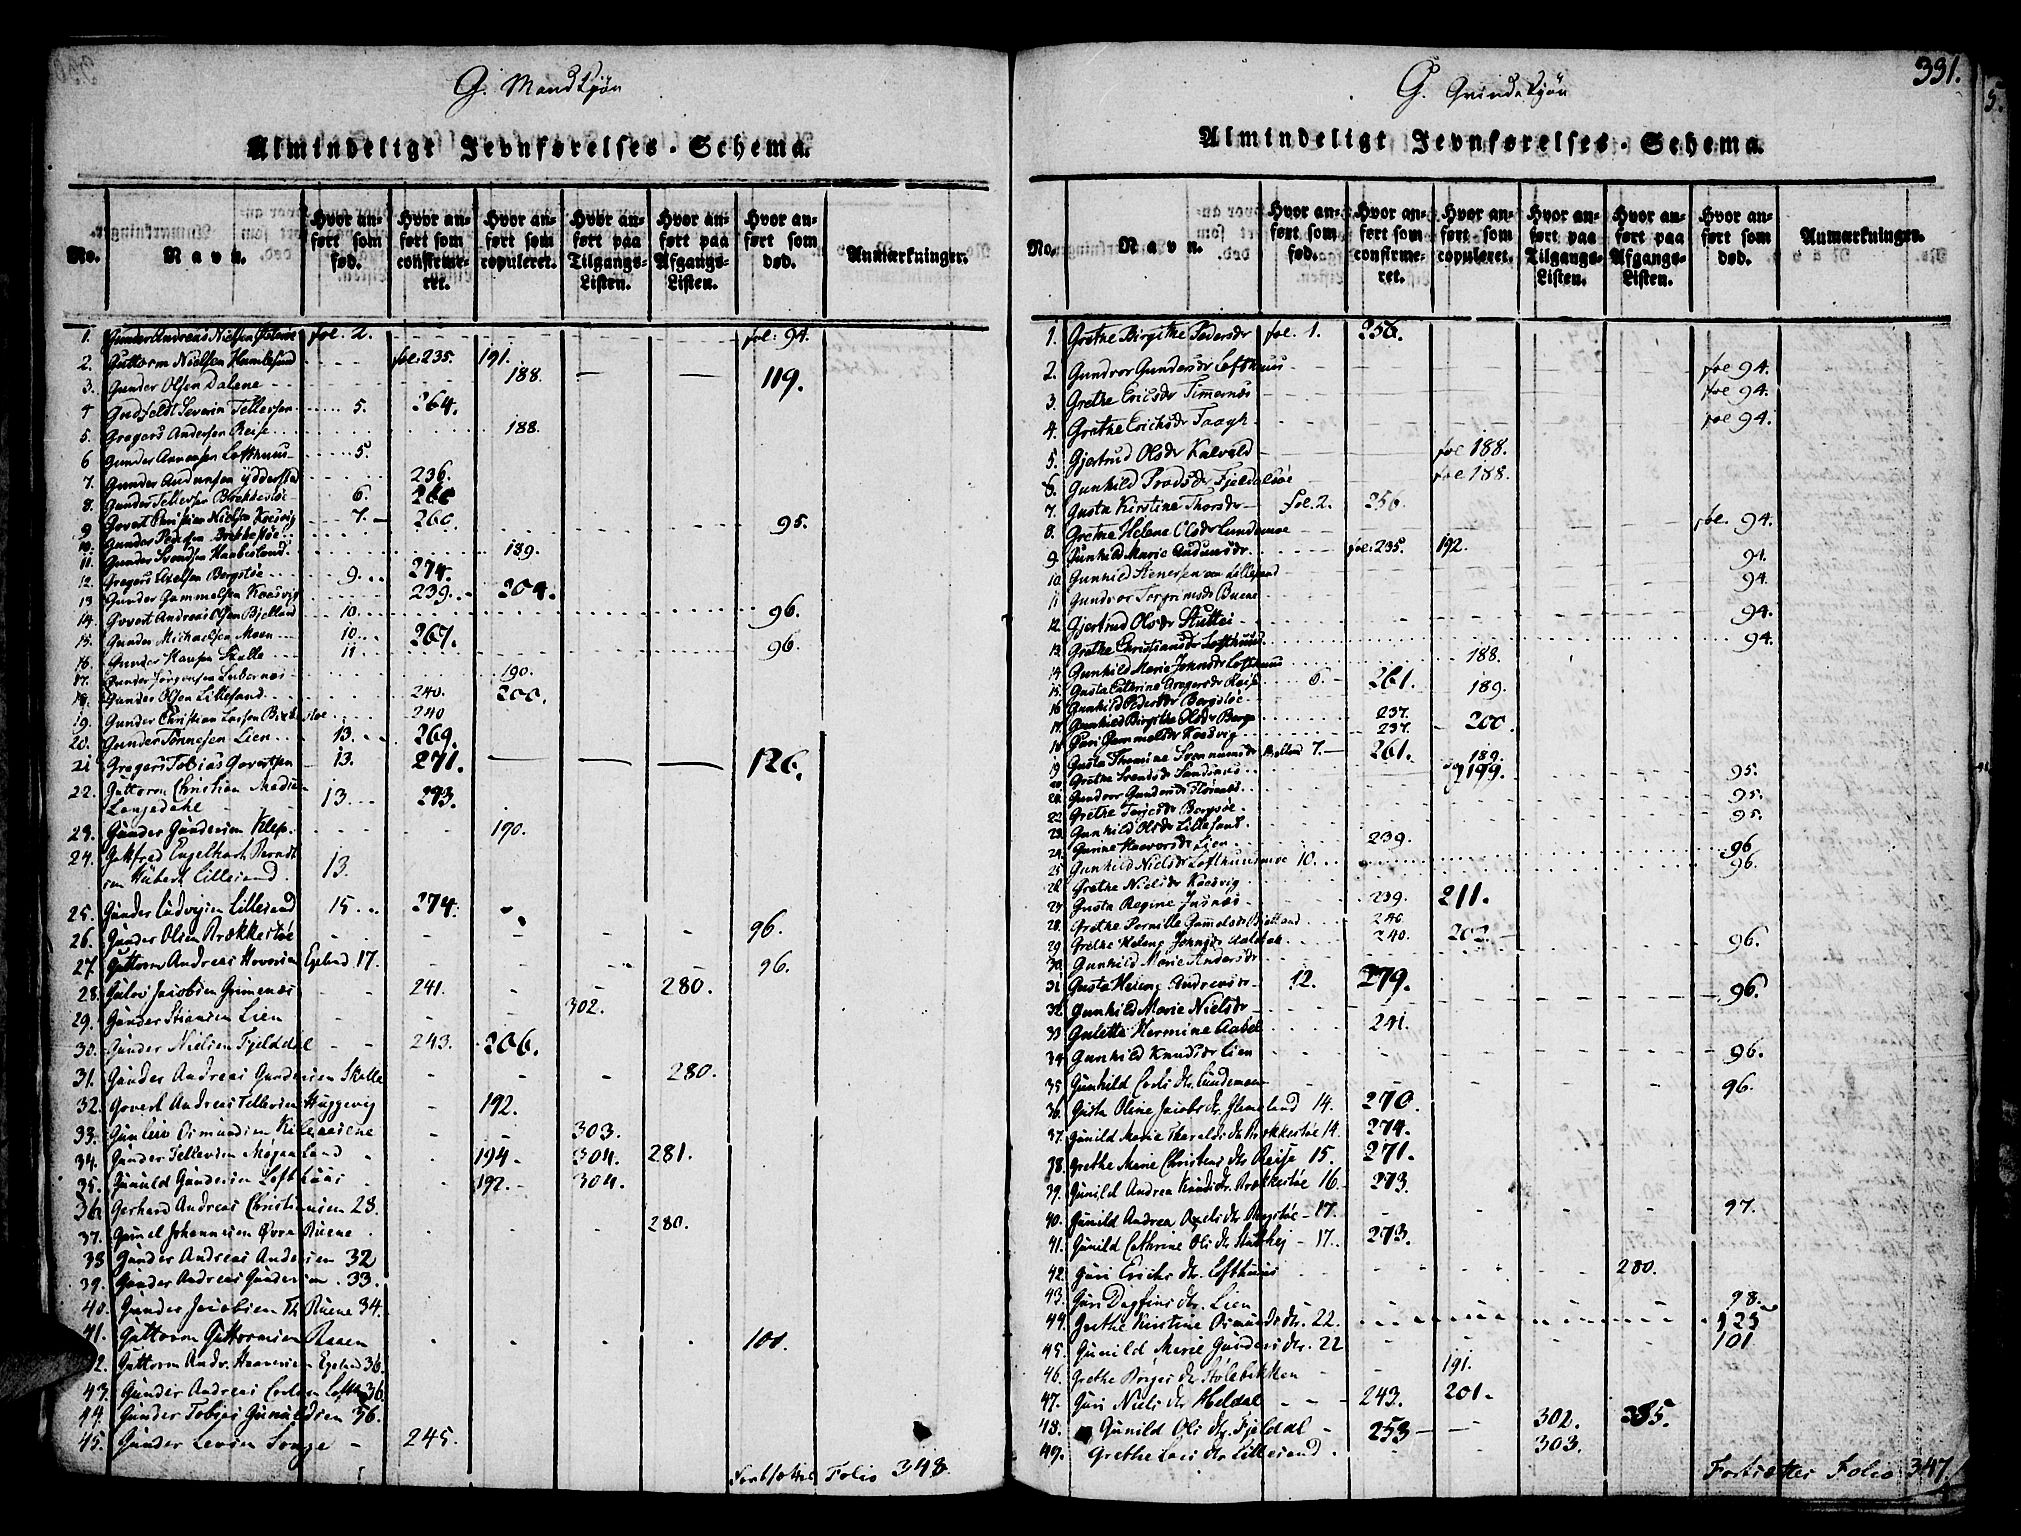 G. Mandkjön
Almindeligt Jevnførelses-Schema.
No. Navn. Hvor anført som fød. Hvor anført som confirmeret. Hvor anført som copuleret. Hvor anført paa Tilgangs-Listen. Hvor anført paa Afgangs-Listen. Hvor anført som død. Anmærkninger.
1. Gunder Andreas Nielsen fol. 2. fol. 94.
2. Guttorm Nielsen Humlesund fol. 235. 191.
3. Gunder Olsen Dalene 188. 119.
4 Severin Tellefsen 5. 264.
5. Gregers Andersen Reise 188.
6 Gunder Lofthuus 5.
7. Gunder Audunsen 236.
8. Gunder Tellefsen Brekkestøe 6. 260
9 Govert Christian Nielsen Kosvig 7. 260. 95.
10. Gunder Pedersen Brekkestøe
11. Gunder Svendsen Kaabesland 189.
12. Gregers Axelsen Bergstøe 9. 274.
13 Gunder Gammelsen Kosvig 239. 204.
14. Govert Andreas Olsen Bjelland 10. 96.
15. Gunder Michaelsen Moen 10. 267.
16. Gunder Hansen Skalle 11. 96.
17. Gunder Jörgensen 190.
18. Gunder Olsen Lillesand 240. 200.
19. Gunder Christian Larsen 240
20. Gunder Tönnesen Lien 13. 269.
21 Gregers Tobias Govertsen 13. 271. 126.
22. Guttorm Christian Madsen
Langedahl 13. 273.
23. Gunder Gundersen Klep 190.
24. Engelhart Berndt
Hübert Lillesand 13.
25. Gunder Ludvigsen Lillesand 15. 274.
26. Gunder Olsen Brækkestøe 96.
27. Guttorm Andreas Hovorsen Egeland 17. 96.
28. Gulov Jacobsen Grimenæs 241. 280.
29. Gunder Stiansen Lien 302.
30. Gunder Nielsen Fjelddal 243. 206.
31. Gunder Andreas Gundersen Skalle 280.
32. Govert Andreas Tellefsen Huggevig 192.
33. Gunleiv Osmundsen 303.
34. Gunder Tellefsen 194. 304. 281.
35. Gunuld Gundersen Lofthuus 192. 304.
36. Gerhard Andreas Christiansen 28.
37. Gumel Johannesen Øvre Ruene 280.
38 Gunder Andreas Andersen 32
39. Gunder Andreas Gundersen 33.
40. Gunder Jacobsen Th. Ruene 34.
41. Guttorm Guttormsen Aasen 101.
42. Guttorm Andr. Haaversen Egeland 36.
43. Gunder Andreas Carlsen Lofth. 36.
44. Gunder Tobias Gunuldsen 36.
45. Gunder Levin Songe 245.
Fortsættes Folio 348.
331.
G. Qvindekjön
Almindeligt Jevnførelses-Schema.
No. Navn. Hvor anført som fød. Hvor anført som confirmeret. Hvor anført som copuleret. Hvor anført paa Tilgangs-Listen. Hvor anført paa Afgangs-Listen. Hvor anført som død. Anmærkninger.
1. Grethe Birgithe Pedersdr fol. 1. 256.
2. Gundvor Gundersdr Lofthuus fol 94.
3. Grethe Ericsdr Timernæs fol 94.
4. Grethe Erichsdr Taagh fol 94.
5. Gjertrud Olsdr Kalvild fol 188.
6. Gunhild Fjeldalsøe fol 188.
7. Gusta Kirstine Thorsdr fol. 2. 256.
8. Grethe Helene Olsdr Lundemoe fol. 94.
9. Gunhild Marie Audunsdr fol. 235. 192.
10. Gunhild Stenersen Lillesand 94.
11 Gundvor Torgrimsdr Buene 94.
12. Gjertrud Olsdr Stuttei 94.
13. Grethe Christiansdr Lofthuus 94.
14. Gunhild Marie Johnsdr Lofthuus 188.
15. Gusta Cathrine Gregersdr Reise 6. 261.
16. Gunhild Pedersdr Bergstøe 189.
17. Gunhild Birgithe Olsdr Berge 237.
18 Guri Gammelsdr Kosvig 237. 200
19 Gusta Thomine Bjelland 7. 261.
20. Grethe Svendsdr Sandsnæs 189. 199.
21. Gundvor Gundersdr 95.
22. Grethe Terjesdr Bergsøe 95.
23. Gunhild Olsdr Lillesand 95.
24. Gurine Haavorsdr Lien 239. 96
25 Gunhild Nielsdr Lofthuusmoe 10. 96.
26. Grethe Nielsdr Kosvig
27. Gusta Regine Jusnæs 239. 211.
28. Grethe Pernille Gamelsdr Bjelland 240.
29. Grethe Helene 240. 202.
30. Gunhild Marie Andersdr 96.
31 Gusta Helene Andersdr 12. 279.
32. Gunhild Marie Nielsdr 96.
33 Guletta Hermine Aabel 241.
34. Gunhild Knudsdr Lien 96.
35 Gunhild Carls dtr. Lundemoen 96.
36. Gusta Oline Jacobs dtr. 14. 270.
37. Gunild Marie Haralds dtr Brækkestøe 14. 274.
38. Grethe Marie Christens dtr. Reise 15. 271.
39. Gunild Andrea Knuds dtr. Brækkestøe 16 273.
40. Gunild Andrea Axels dtr Bergstøe 17. 97.
41. Gunild Cathrine Ols dtr 17. 273.
42. Guri Erichs dtr. Lofthuus 280.
43. Guri Dagfins dtr. Lien 98.
44. Grethe Kirstine Osmunds dtr. 22. 123
45. Gunild Marie Gunders dtr. 22 101
46. Grethe Børges dtr Hölebekken 191.
47. Guri Niels dtr Heldal 243. 201.
48. Gunild Ols dtr. Fjeldal 253 302.
49. Grethe Lars dtr Lillesand 303.
Fortsættes Folio 347.